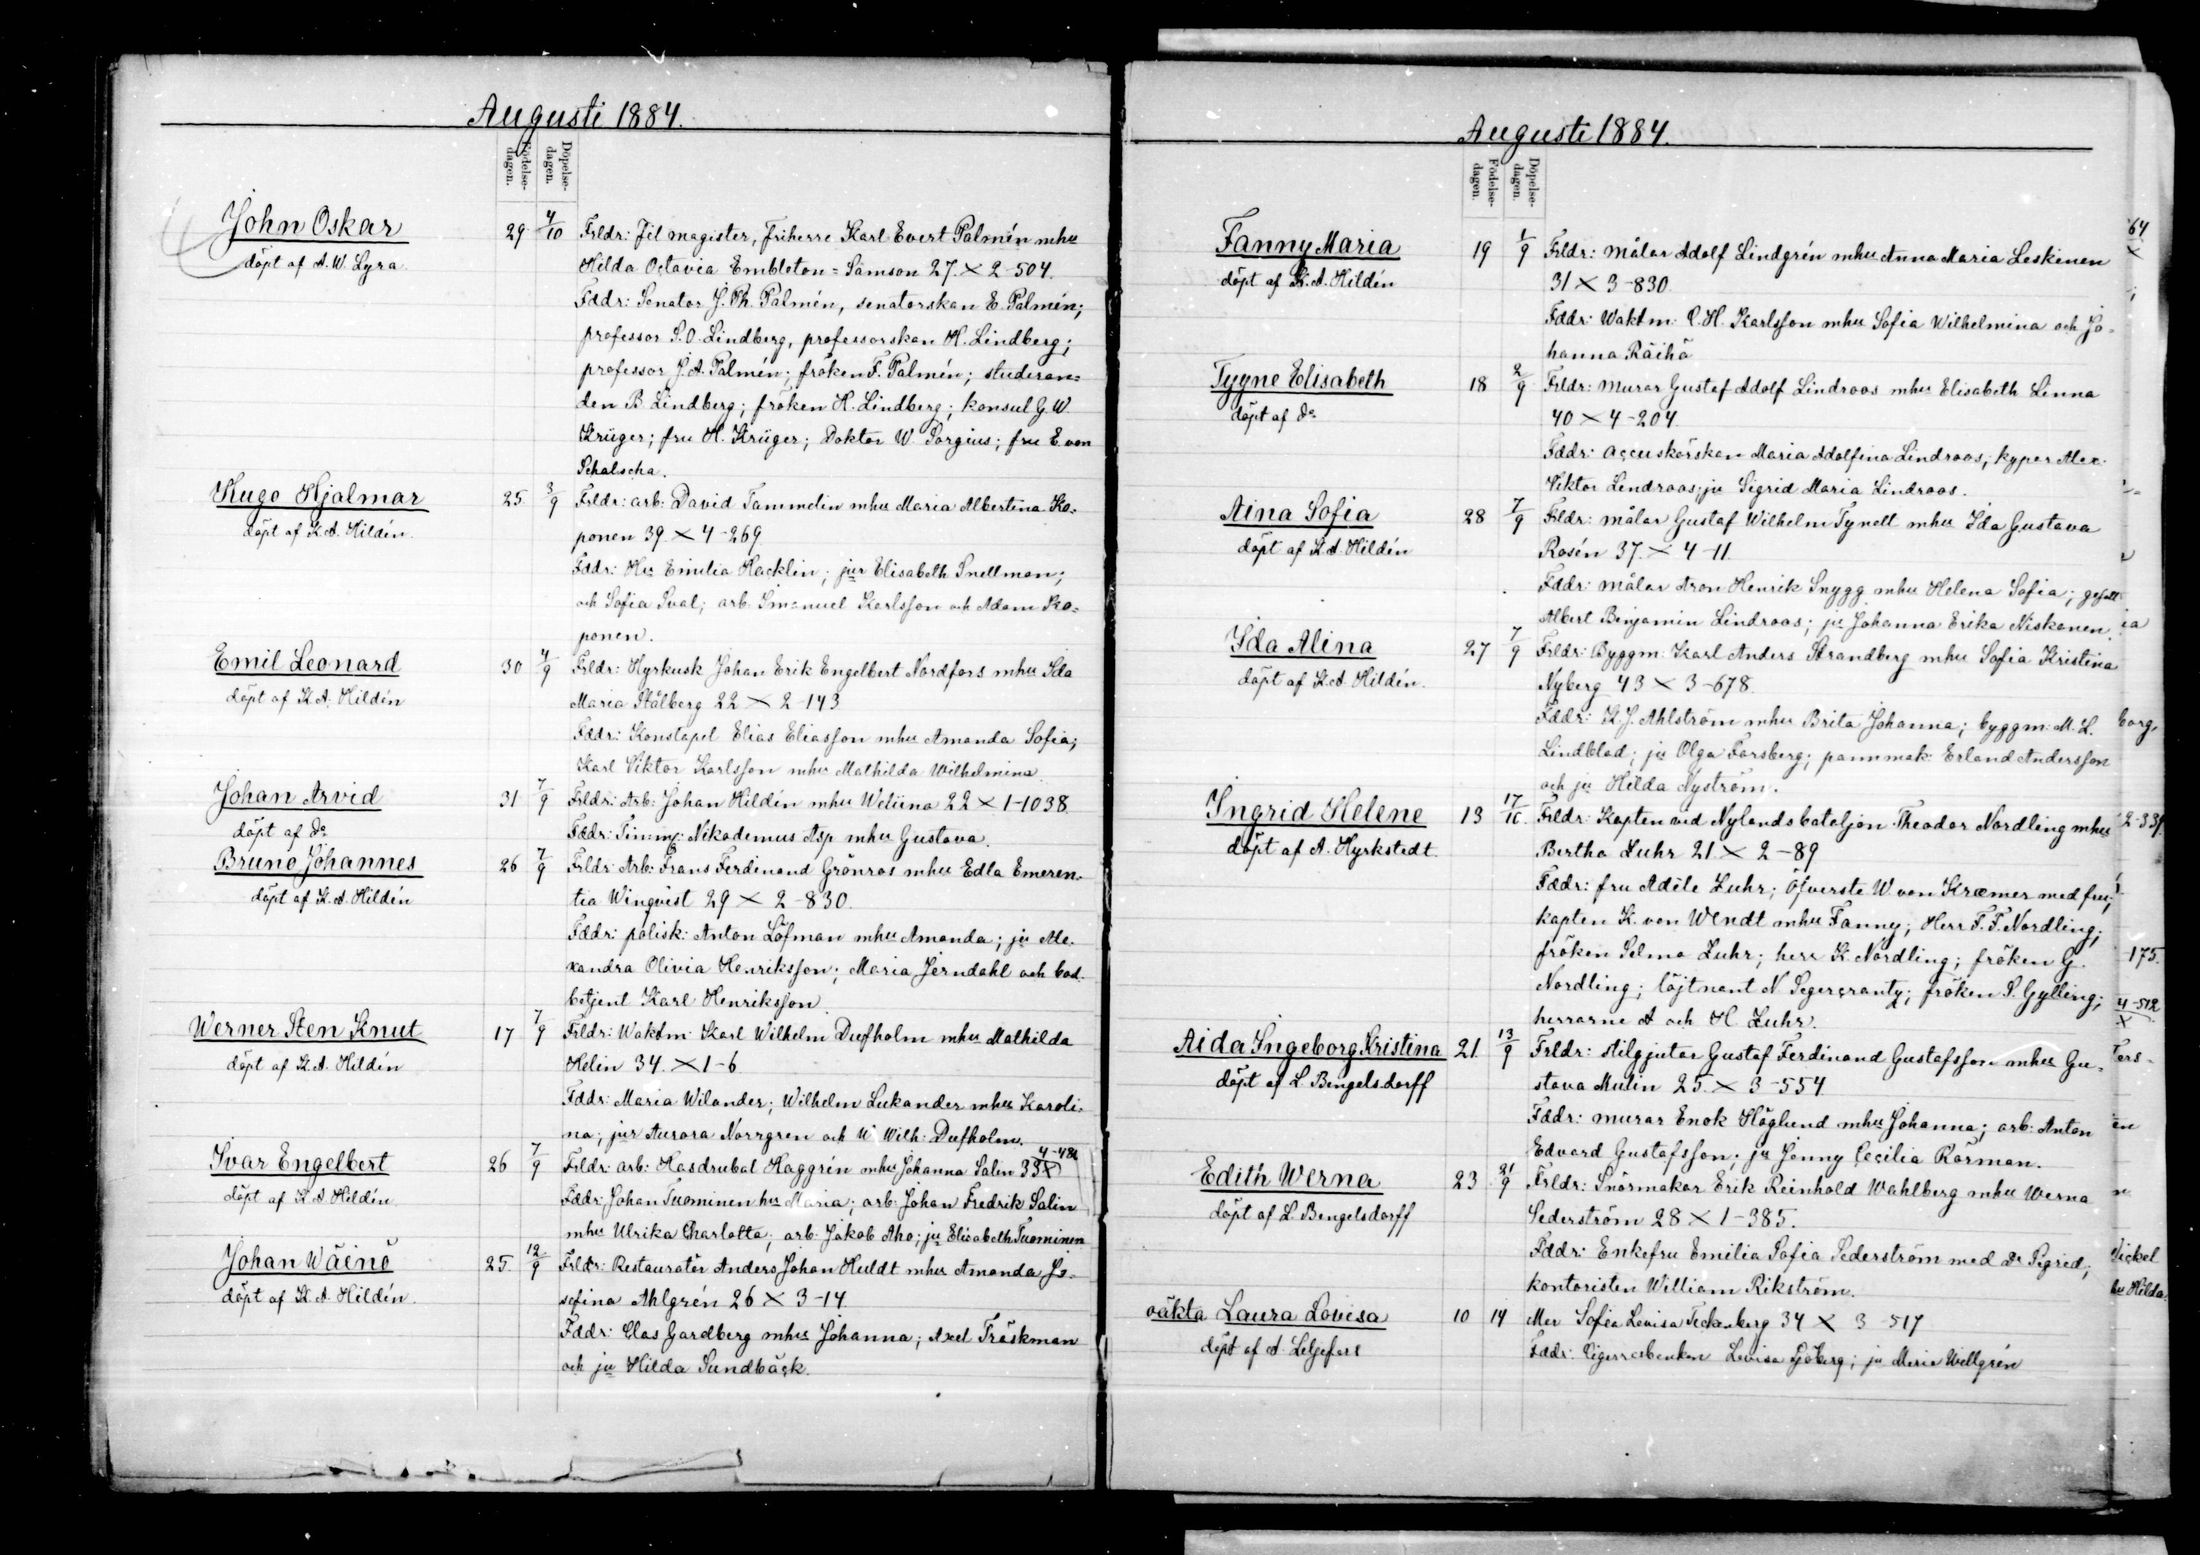 Augusti 1884.
Födelse-dagen.
Döpelse-dagen.
John Oskar
döpt af A. W. Lyra
29 4/10 Frldr: Fil magister, friherre Karl Evert Palmén mhu
Hilda Octavia Embleton=Samson 27. × 2-504.
Fddr: Senator J. Ph. Palmén, senatorskan E. Palmén;
professor S. O. Lindberg, professorskan H. Lindberg;
professor J. A. Palmén; fröken F. Palmén; studeran=
den B. Lindberg; fröken H. Lindberg; konsul G. W.
Krüger; fru H. Krüger; Doktor W. Sorgius; fru E. von
Schalscha.
Hugo Hjalmar
döpt af K. A. Hildén.
25 3/9 Frldr: arb: David Tammelin mhu Maria Albertina Ko=
ponen 39. × 4-269
Fddr: Hu Emilia Hacklin; jur Elisabeth Snellman;
och Sofia Sval; arb. Emanuel Karlsson och Adam Ko=
ponen.
Emil Leonard
döpt af K. A. Hildén
30 4/9 Frldr: Hyrkusk Johan Erik Engelbert Nordfors mhu Ida
Maria Stålberg 22 × 2-143
Fddr: Konstapel Elias Eliasson mhu Amanda Sofia;
Karl Viktor Karlsson mhu Mathilda Wilhelmina
Johan Arvid
döpt af do
31 7/9 Frldr: Arb: Johan Hildén mhu Weliina 22 × 1-1038.
Fddr: Timm: Nikodemus Asp mhu Gustava.
Bruno Johannes
döpt af K. A. Hildén
26 7/9 Frldr: Arb: Frans Ferdinand Grönros mhu Edla Emeren=
tia Winqvist 29 × 2-830.
Fddr: polisk: Anton Löfman mhu Amanda; ju Ale=
xandra Olivia Henriksson; Maria Jerndahl och bod=
betjent Karl Henriksson
Werner Sten Knut
döpt af K. A. Hildén
17 7/9 Frldr: Waktm: Karl Wilhelm Dufholm mhu Mathilda
Helin 34. × 1-6
Fddr: Maria Wilander; Wilhelm Lukander mhu Karoli=
na; jur Aurora Norrgren och W. Wilh: Dufholm.
Ivar Engelbert
döpt af K. A. Hildén
26 7/9 Frldr: arb: Hasdrubal Haggrén mhu Johanna Salin 33 ×
Fddr: Johan Tuominen hu Maria; arb: Johan Fredrik Salin
mhu Ulrika Charlotta; arb: Jakob Aho; ju Elisabeth Tuominen
Johan Wäinö
döpt af K. A. Hildén.
25 12/9 Frldr: Restauratör Anders Johan Huldt mhu Amanda Jo=
sefina Ahlgrén 26 × 3-14.
Fddr: Clas Gardberg mhu Johanna; Axel Träskman
och ju Hilda Sundbäck.
Augusti 1884.
Födelse-dagen.
Döpelse-dagen.
Fanny Maria
döpt af K. A. Hildén
19 1/9 Frldr: målar Adolf Lindgrén mhu Anna Maria Leskinen
31 × 3-830.
Fddr: Waktm: C. H. Karlsson mhu Sofia Wilhelmina och Jo=
hanna Räihä
Tyyne Elisabeth
döpt af do
18 2/9 Frldr: murar Gustaf Adolf Lindroos mhu Elisabeth Linna
40 × 4-204.
Fddr: accuskörskan Maria Adolfina Lindroos; kypar Alex:
Viktor Lindroos; ju Sigrid Maria Lindroos.
Aina Sofia
döpt af K. A. Hildén
28 7/9 Frldr: målar Gustaf Wilhelm Tynell mhu Ida Gustava
Rosén 37. × 4-11.
Fddr: målar Aron Henrik Snygg mhu Helena Sofia; gesäll
Albert Benjamin Lindroos; ju Johanna Erika Niskanen.
Ida Alina
döpt af K. A. Hildén.
27 7/9 Frldr: Byggm: Karl Anders Strandberg mhu Sofia Kristina
Nyberg 43 × 3-678.
Fddr: K. J. Ahlström mhu Brita Johanna; byggm: M. L.
Lindblad; ju Olga Forsberg; pannmak: Erland Andersson
och ju Hilda Nyström.
Ingrid Helene
döpt af A. Hyrkstedt.
13 17/10 Frldr: Kapten vid Nylands bataljon Theodor Nordling mhu
Bertha Luhr 21. × 2-89
Fddr: fru Adèle Luhr; Öfverste W. von Kræmer med fru;
kapten K. von Wendt mhu Fanny; Herr F. F. Nordling;
fröken Selma Luhr; herr K. Nordling; fröken G.
Nordling; löjtnant N. Segercrantz; fröken S. Gylling;
herrarne A och H. Luhr.
Aida Ingeborg Kristina
döpt af L. Bengelsdorff
21. 13/9 Frldr: stilgjutar Gustaf Ferdinand Gustafsson mhu Gu=
stava Mulin 25. × 3-554
Fddr: murar Enok Höglund mhu Johanna; arb: Anton
Edvard Gustafsson; ju Jenny Cecilia Rörman.
Edith Werna
döpt af L. Bengelsdorff
23 21/9 Frldr: Snörmakar Erik Reinhold Wahlberg mhu Werna
Sederström 28 × 1-385.
Fddr: Enkefru Emilia Sofia Sederström med dr Sigrid;
kontoristen William Rikström.
oäkta Laura Lovisa
döpt af A. Liljefors
10 14 Mor Sofia Lovisa Teckenberg 34 × 3-517
Fddr: Lovisa Sjöberg; ju Maria Wellgrén